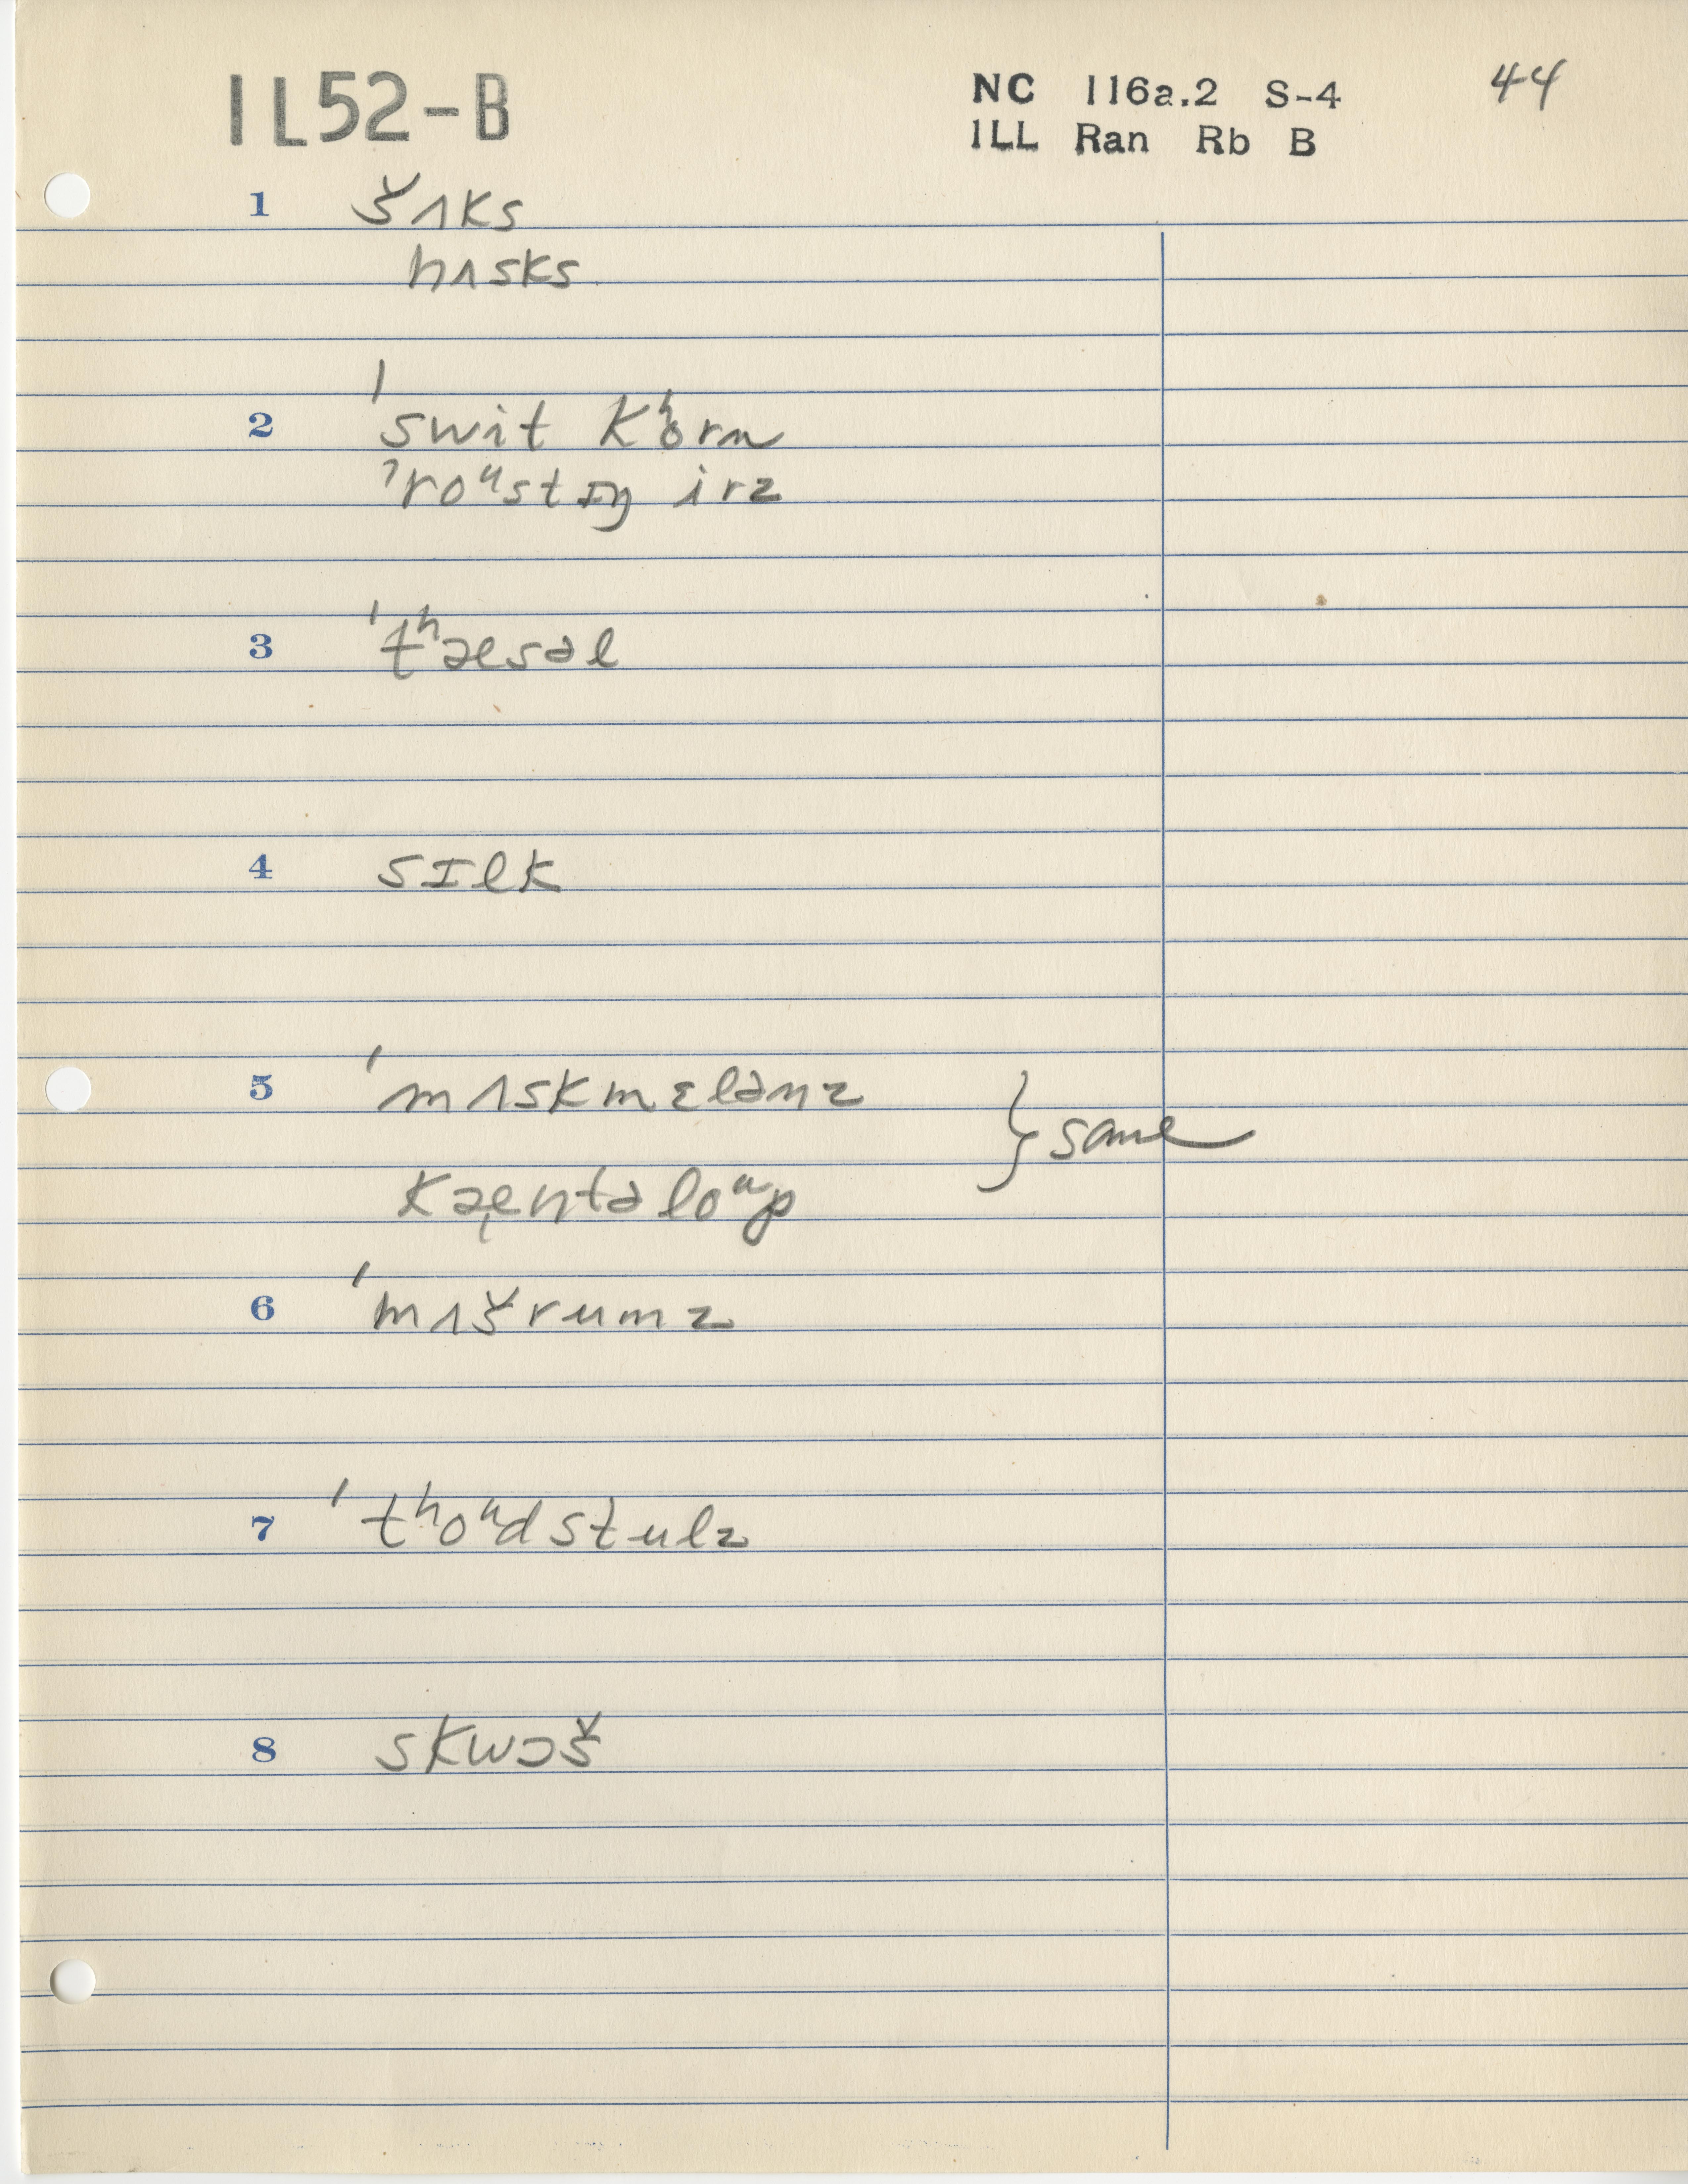 IL52-B
NC 116a.2 S-4 44
ILL Ran Rb B
1 šʌks
hʌsks
2 ˈswit kʰɔrn
ˈroᵘstɪŋ irz
3 ˈtʰæsəl
4 sɪlk
5 ˈmʌskmɛlənz
} same
kæntəloᵘp
6 ˈmʌšrumz
7 ˈtʰoᵘdstulz
8 skwɔš